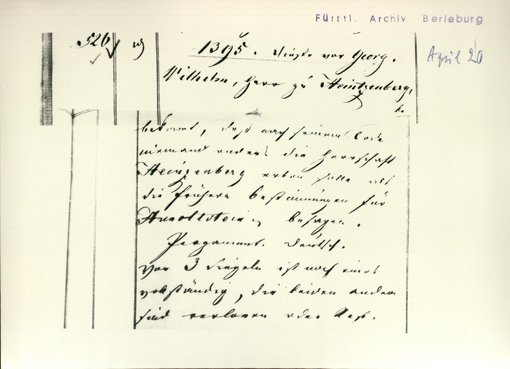 Fürstl. Archiv Berleburg
April 20
526
1395. Georg.
Wilhelm, Herr zu Heintzenberg,
bekannt, daß nach seinem Tode
niemand anders die Herrschaft
Heinzenberg erben solle als
die frühern Bestimmungen für
besagen.
Pergament. Deutsch.
Von 3 Siegeln ist noch eines
vollständig, die beiden andern
sind verloren oder